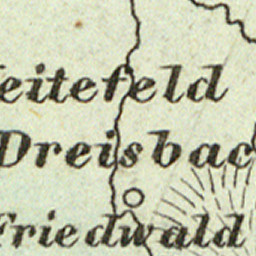 eitefeld
Dreisbac
Friedwald